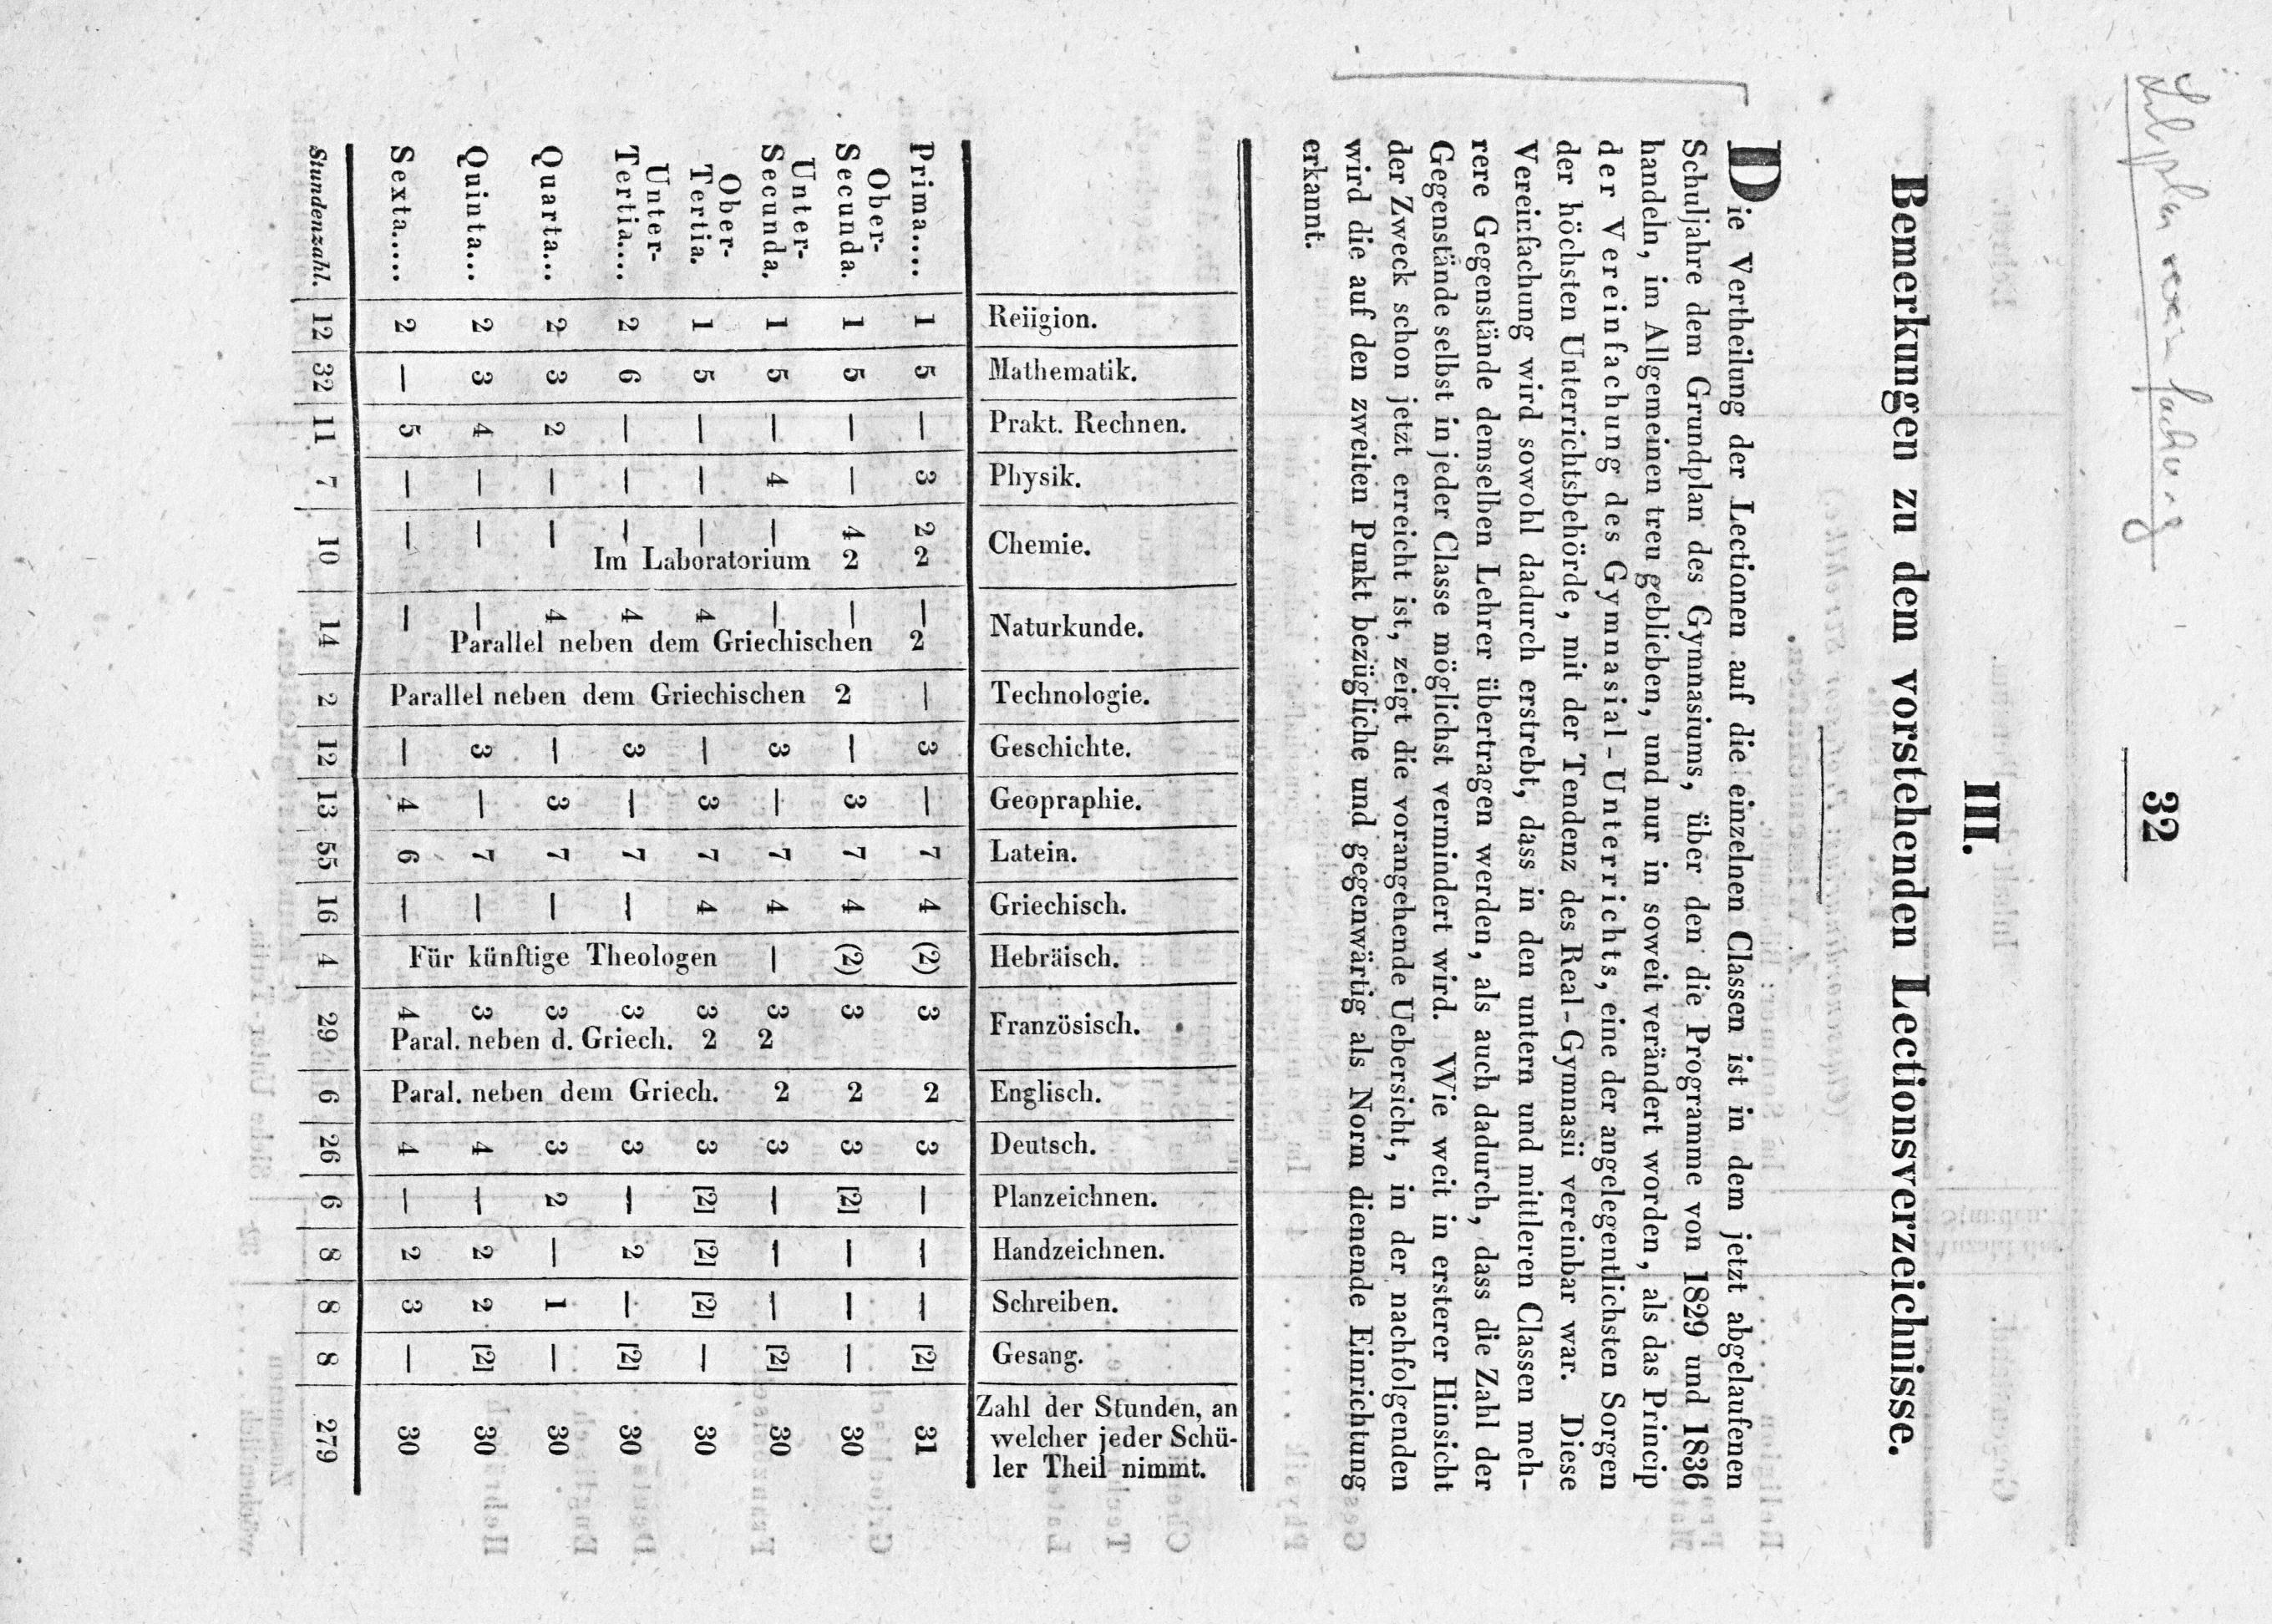 Lehrplanvereinfachung
32
III.
Bemerkungen zu dem vorstehenden Lectionsverzeichnisse.
Die Vertheilung der Lectionen auf die einzelnen Classen ist in dem jetzt abgelaufenen
Schuljahre dem Grundplan des Gymnasiums, über den die Programme von 1829 und 1836
handeln, im Allgemeinen treu geblieben, und nur in soweit verändert worden, als das Princip
der Vereinfachung des Gymnasial-Unterrichts, eine der angelegentlichsten Sorgen
der höchsten Unterrichtsbehörde, mit der Tendenz des Real-Gymnasii vereinbar war. Diese
Vereinfachung wird sowohl dadurch erstrebt, dass in den untern und mittleren Classen meh-
rere Gegenstände demselben Lehrer übertragen werden, als auch dadurch, dass die Zahl der
Gegenstände selbst in jeder Classe möglichst vermindert wird. Wie weit in ersterer Hinsicht
der Zweck schon jetzt erreicht ist, zeigt die vorangehende Uebersicht, in der nachfolgenden
wird die auf den zweiten Punkt bezügliche und gegenwärtig als Norm dienende Einrichtung
erkannt.
Reiigion. Mathematik. Prakt. Rechnen. Physik. Chemie. Naturkunde. Technologie. Geschichte. Geopraphie. Latein. Griechisch. Hebräisch. Französisch. Englisch. Deutsch. Planzeichnen. Handzeichnen. Schreiben. Gesang. Zahl der Stunden, an
welcher jeder Schü-
ler Theil nimmt.
Prima.... 1 5 — 3 2 2 — 2 — 3 — 7 4 (2) 3 2 3 — — — [2] 31
Ober-
Secunda. 1 5 — — 4 2 — 2 — 3 7 4 (2) 3 2 3 [2] — — — 30
Unter-
Secunda. 1 5 — 4 — — 3 — 7 4 — 3 2 2 3 — — — [2] 30
Ober-
Tertia. 1 5 — — — 4 — 3 7 4 3 2 3 [2] [2] [2] — 30
Unter-
Tertia.... 2 6 — — — 4 3 — 7 — 3 3 — 2 — [2] 30
Quarta... 2 3 2 — — 4 — 3 7 — 3 3 2 — 1 — 30
Quinta... 2 3 4 — — — 3 — 7 — 3 4 — 2 2 [2] 30
Sexta.... 2 — 5 — — — — 4 6 — 4 4 — 2 3 — 30
Im Laboratorium
Parallel neben dem Griechischen
Parallel neben dem Griechischen
Für künftige Theologen
Paral. neben d. Griech.
Paral. neben dem Griech.
Stundenzahl. 12 32 11 7 10 14 2 12 13 55 16 4 29 6 26 6 8 8 8 279